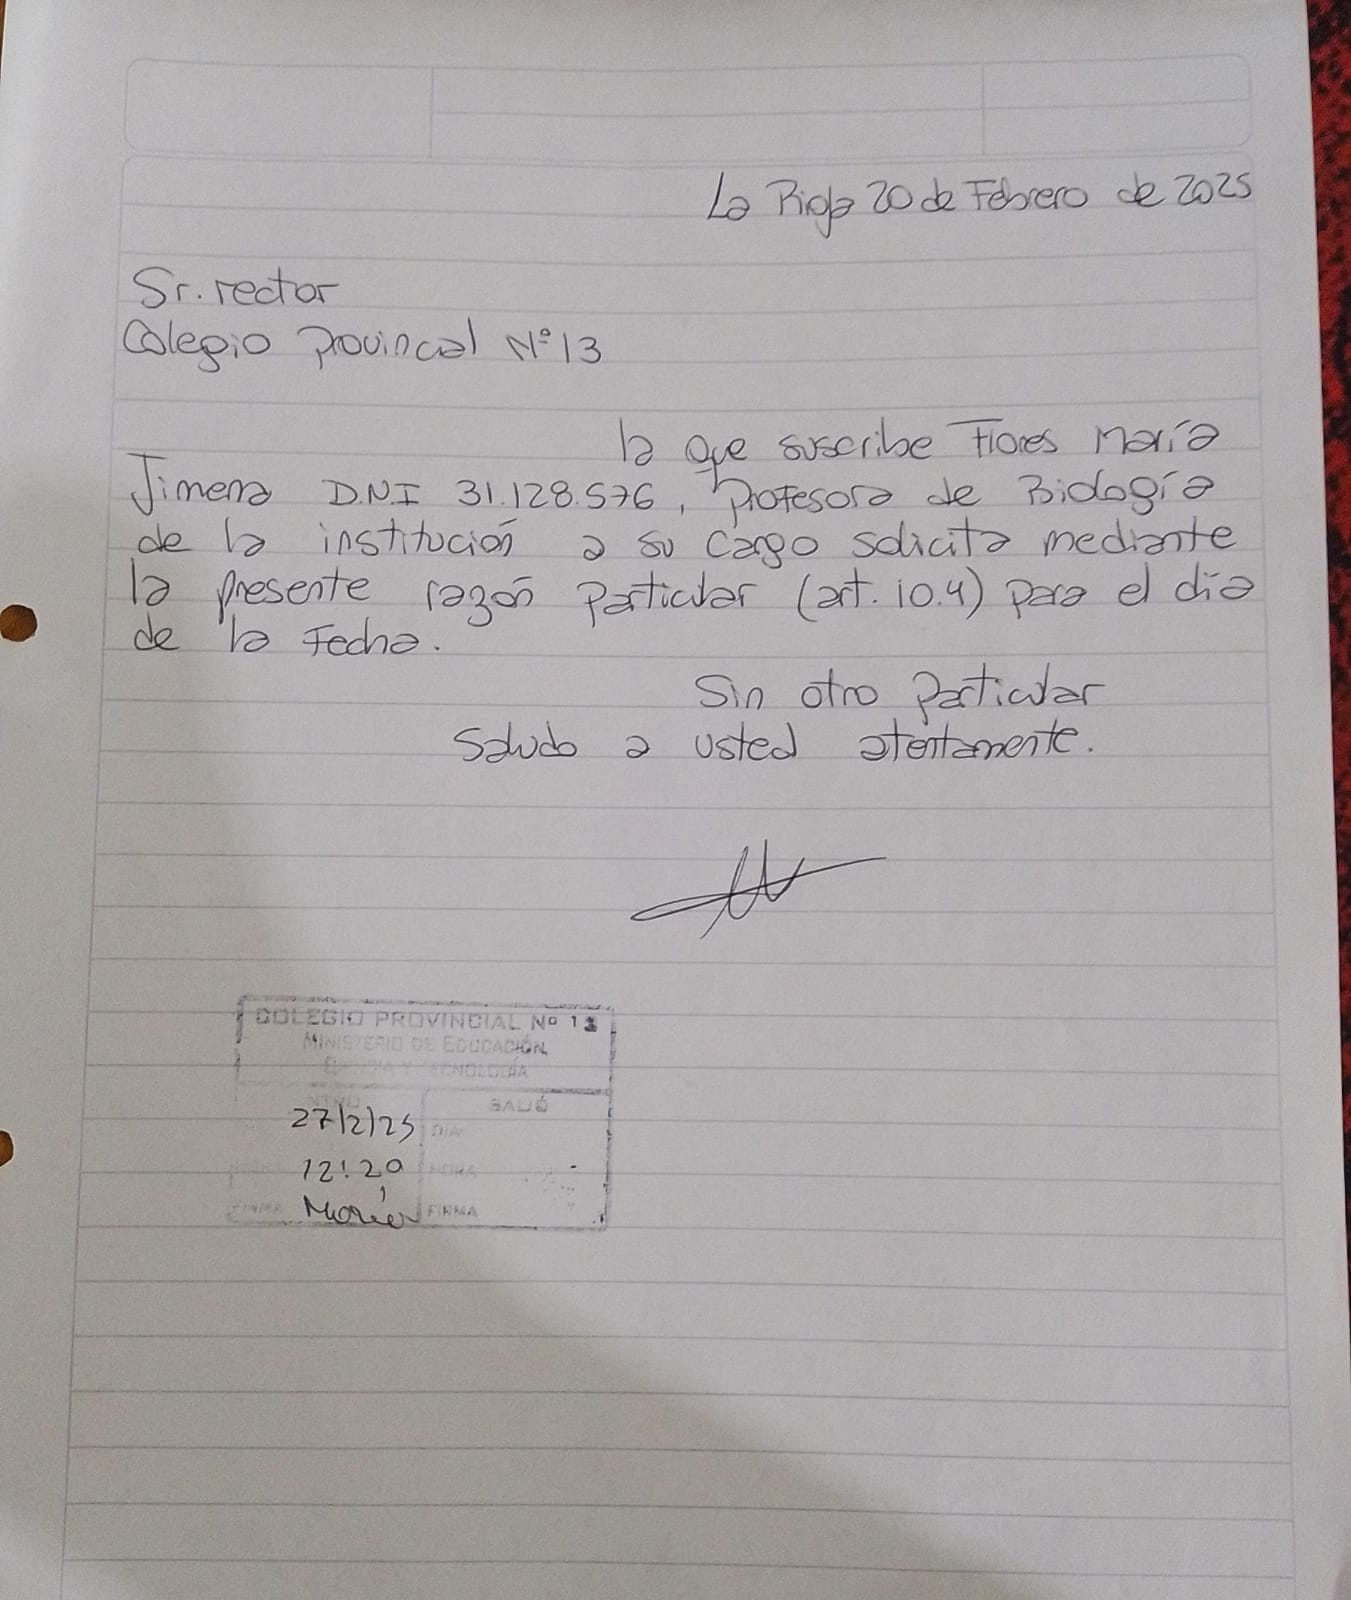 La Rioja 20 de Febrero de 2025
Sr. rector
Colegio Provincial N° 13
la que suscribe Flores María
Jimena D.N.I 31.128.576, Profesora de Biología
de la institución a su cargo solicita mediante
la presente razón Particular (art. 10.4) para el día
de la Fecha.
Sin otro Particular
Saludo a usted atentamente.
COLEGIO PROVINCIAL Nº 13
MINISTERIO DE EDUCACIÓN
CIENCIA Y TECNOLOGÍA
ENTRO SALIÓ
27/2/25 DIA
HORA 12:20 HORA
FIRMA FIRMA